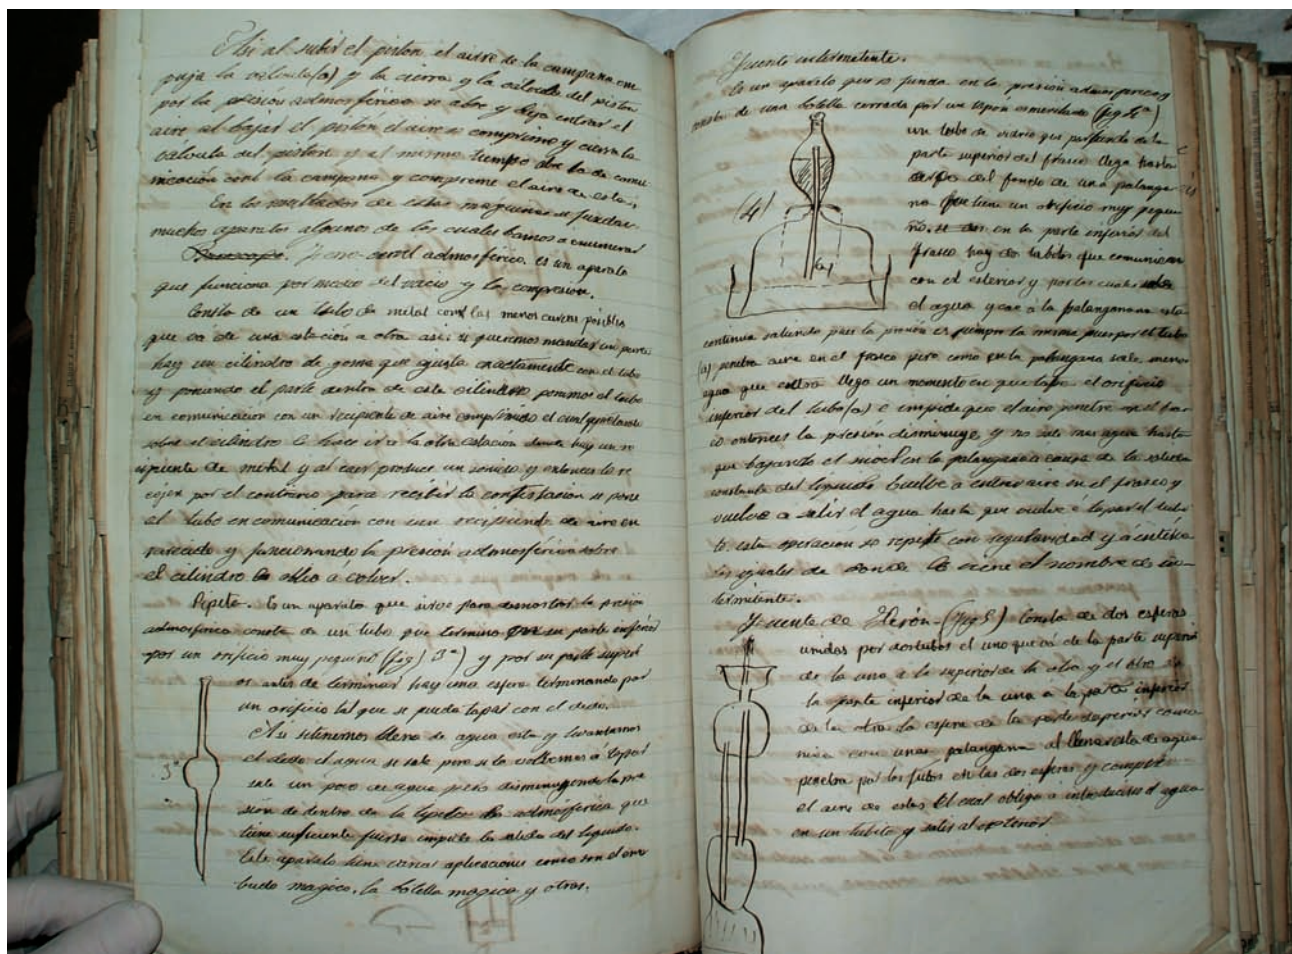 Asi al subir el piston el aire de la campana em
puja la válvula (a) y la cierra y la válvula del piston
por la presión admosférica se abre y deja entrar el
aire al bajar el pistón el aire se comprime y cierra la
válvula del piston y al mismo tiempo abre la de comu-
nicación con la campana y comprime el aire de esta;
En los resultados de estas maquinas se fundan
muchos aparatos algunos de los cuales bamos a enumerar
admosférico. es un aparato
que funciona por medio del vacio y la compresión.
Consta de un tubo de metal con las menos curvas posibles
que vá de una estación a otra asi si queremos mandar un parte
hay un cilindro de goma que ajusta exactamente con el tubo
y poniendo el parte dentro de este cilindro ponemos el tubo
en comunicación con un recipiente de aire comprimido el cual
sobre el cilindro le hace ir a la otra estación donde hay un re
cipiente de metal y al caer produce un sonido y entonces le re
cojen por el contrario para recibir la contestacion se pone
el tubo en comunicación con un recipiente de aire en
rarecido y funcionando la presión admosférica sobre
el cilindro le obliga á volver.
Pipeta. Es un aparato que sirve para demostrar la presión
admosferica consta de un tubo que termina en su parte inferior
por un orificio muy pequeño (fig) 3ª) y por su parte superi
or antes de terminar hay una esfera terminando por
un orificio tal que se pueda tapar con el dedo.
Asi si tenemos llena de agua esta y levantamos
el dedo el agua se sale pero si lo volvemos a tapar
sale un poco de agua pero disminuyendo la pre
sión de dentro de la pipeta la admosferica que
tiene suficiente fuerza impide la salida del liquido.
Este aparato tiene varias aplicaciones como son el em
budo magico, la botella magica y otras.
3ª
Fuente intermitente.
Es un aparato que se funda en la presión admosferica y
consta de una botella cerrada por un tapon esmerilado (fig 4ª)
un tubo de vidrio que partiendo de la
parte superior del frasco llega hasta
cerca del fondo de una palanga-
na que tiene un orificio muy peque
ño. en la parte inferior del
frasco hay dos tubitos que comunican
con el exterior y por los cuales sale
el agua y cae a la palangana esta
(4)
(a)
continua saliendo pues la presión es siempre la misma pues por el tubo
(a) penetra aire en el frasco pero como en la palangana sale menos
agua que entra llega un momento en que tapa el orificio
inferior del tubo (a) é impide que el aire penetre en el fras
co entonces la presión disminuye y no sale mas agua hasta
que bajando el nivel en la palangana a causa de la salida
constante del liquido buelbe a entrar aire en el frasco y
vuelve a salir el agua hasta que vuelve á tapar el tubi
to esta operacion se repite con regularidad y á
iguales de donde le viene el nombre de in-
termitente.
Fuente de Herón-(fig 5) Consta de dos esferas
unidas por dos tubos el uno que vá de la parte superior
de la una a la superior de la otra y el otro de
la parte inferior de la una a la parte inferior
de la otra la esfera de la parte superior comu
nica con una palangana al llenar esta de agua
penetra por los tubos en las dos esferas y comprime
el aire de estas el cual obliga a introducirse el agua
en un tubito y salir al exterior